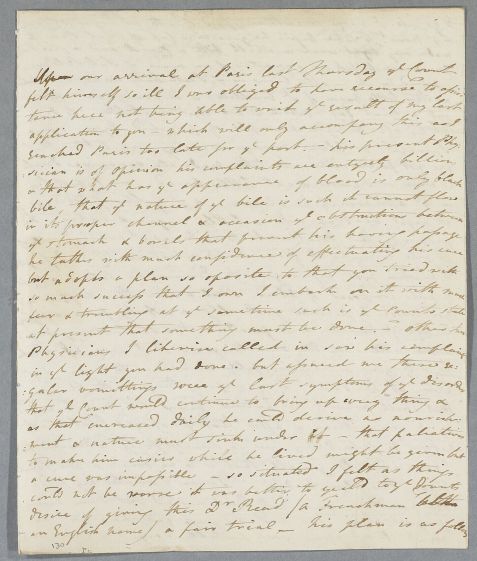 Upon our arrival at Paris last Thursday ye Count
felt himself so ill I was obliged to have recourse to assis
tance here not being able to wait ye result of my last
application to you - which will only accompany this as I
reached Paris too late for ye post - his present Phy
sician is of opinion his complaints are entirely billious
& that what has ye appearance of blood is only black
bile - that ye nature of ye bile is such it cannot flow
in its proper channel & occasion ye obstruction between
ye stomach & bowels that prevent his having passage
he talks with much confidence of effectuating his cure
but adopts a plan so oposite to that you tried with
so much success that I own I embark on it with much
fear & trembling at ye same time such is ye Counts state
at present that something must be done. - other two
Physicians I likewise called in saw his complaint
in ye light you had done - but assured me these re
:gular vomittings were ye last symptoms of ye disorder
that ye Count would continue to bring up every thing &
as that encreased daily he could derive no nourish
:ment & nature must sink under it - that paliatives
to make him easier while he lived might be given but
a cure was impossible - so situated I felt as things
could not be worse it was better to yield to ye Counts
desire of giving this Dr Read (a Frenchman
an English name) a fair trial - his plan is as follows
130